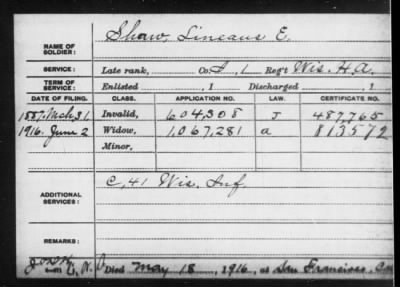 NAME OF SOLDIER: Shaw, Lineaus E.
SERVICE: Late rank, Co. I, 1 Reg't Wis. H.A.
TERM OF SERVICE: Enlisted , 1 Discharged , 1
DATE OF FILING. CLASS. APPLICATION NO. LAW. CERTIFICATE NO.
1887. Mch 31. Invalid, 604,308 J 487,765
1916. June 2 Widow, 1,067,281 a 813572
Minor,
ADDITIONAL SERVICES: C, 41 Wis. Inf.
REMARKS:
Died May 18, 1916, at San Francisco,